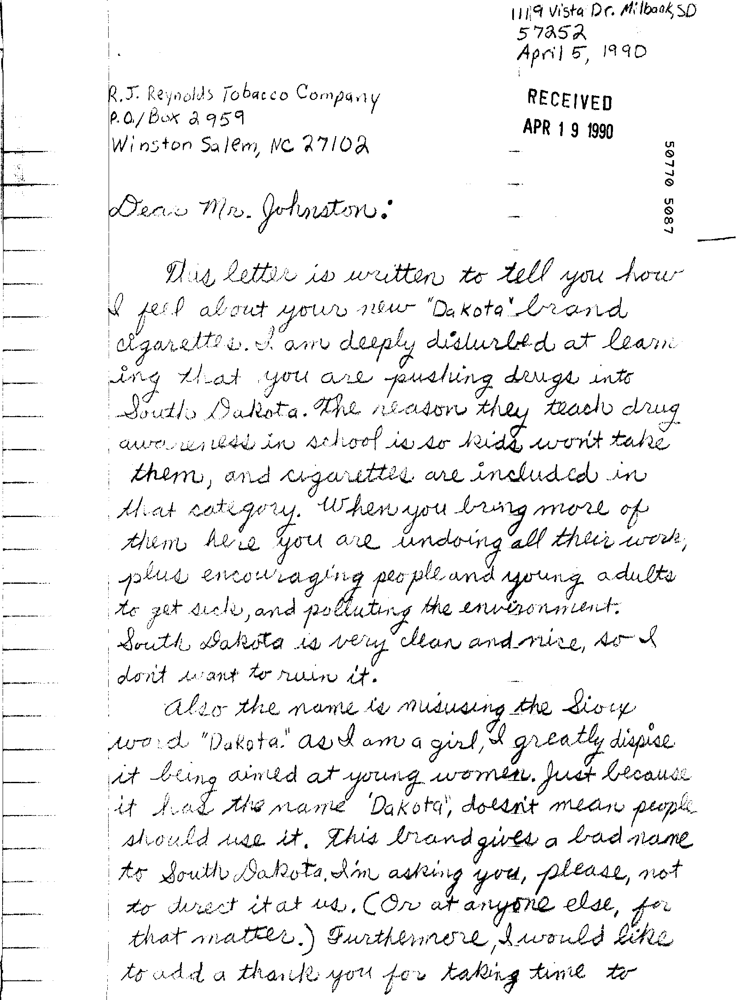 1119 Vista Dr. Milbank, SD
57252
April 5, 1990
R.J. Reynolds Tobacco Company
P.O./Box 2959
Winston Salem, NC 27102
RECEIVED
APR 19 1990
50770 5087
Dear Mr. Johnston:
This letter is written to tell you how
I feel about your new "Dakota" brand
cigarettes. I am deeply disturbed at learn
ing that you are pushing drugs into
South Dakota. The reason they teach drug
awareness in school is so kids won't take
them, and cigarettes are included in
that category. When you bring more of
them here you are undoing all their work,
plus encouraging people and young adults
to get sick, and polluting the environment.
South Dakota is very clean and nice, so I
don't want to ruin it.
Also the name is misusing the Sioux
word "Dakota." As I am a girl, I greatly dispise
it being aimed at young women. Just because
it has the name 'Dakota", doesn't mean people
should use it. This brand gives a bad name
to South Dakota. I'm asking you, please, not
to direct it at us. (Or at anyone else, for
that matter.) Furthermore, I would like
to add a thank you for taking time to